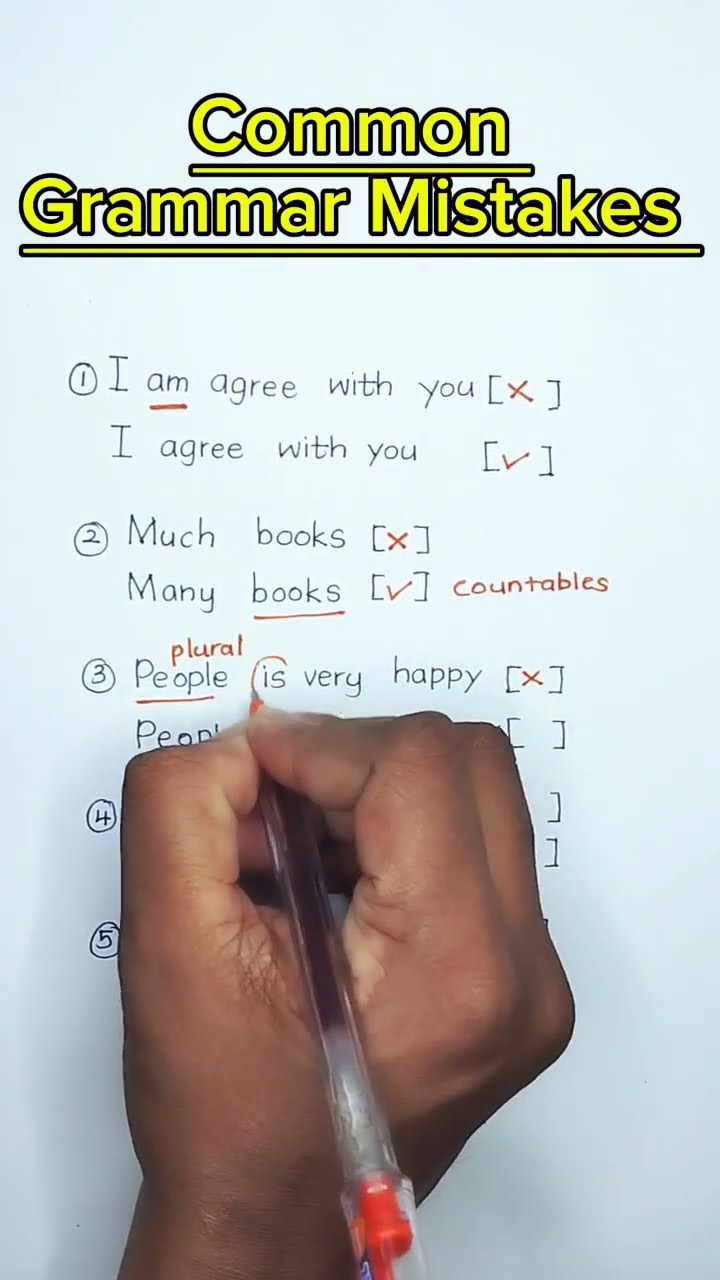 Common
Grammar Mistakes
① I am agree with you [×]
I agree with you [✓]
② Much books [×]
Many books [✓] countables
plural
③ People is very happy [×]
[ ]
④ ]
]
⑤